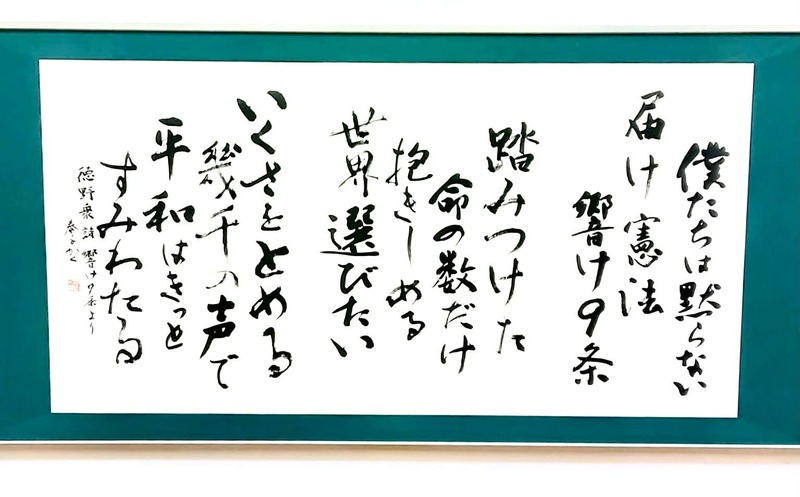 僕たちは黙らない
届け憲法
響け9条
踏みつけた
命の数だけ
抱きしめる
世界選びたい
いくさをとめる
幾千の声で
平和はきっと
すみわたる
徳野衆詩 響け9条より